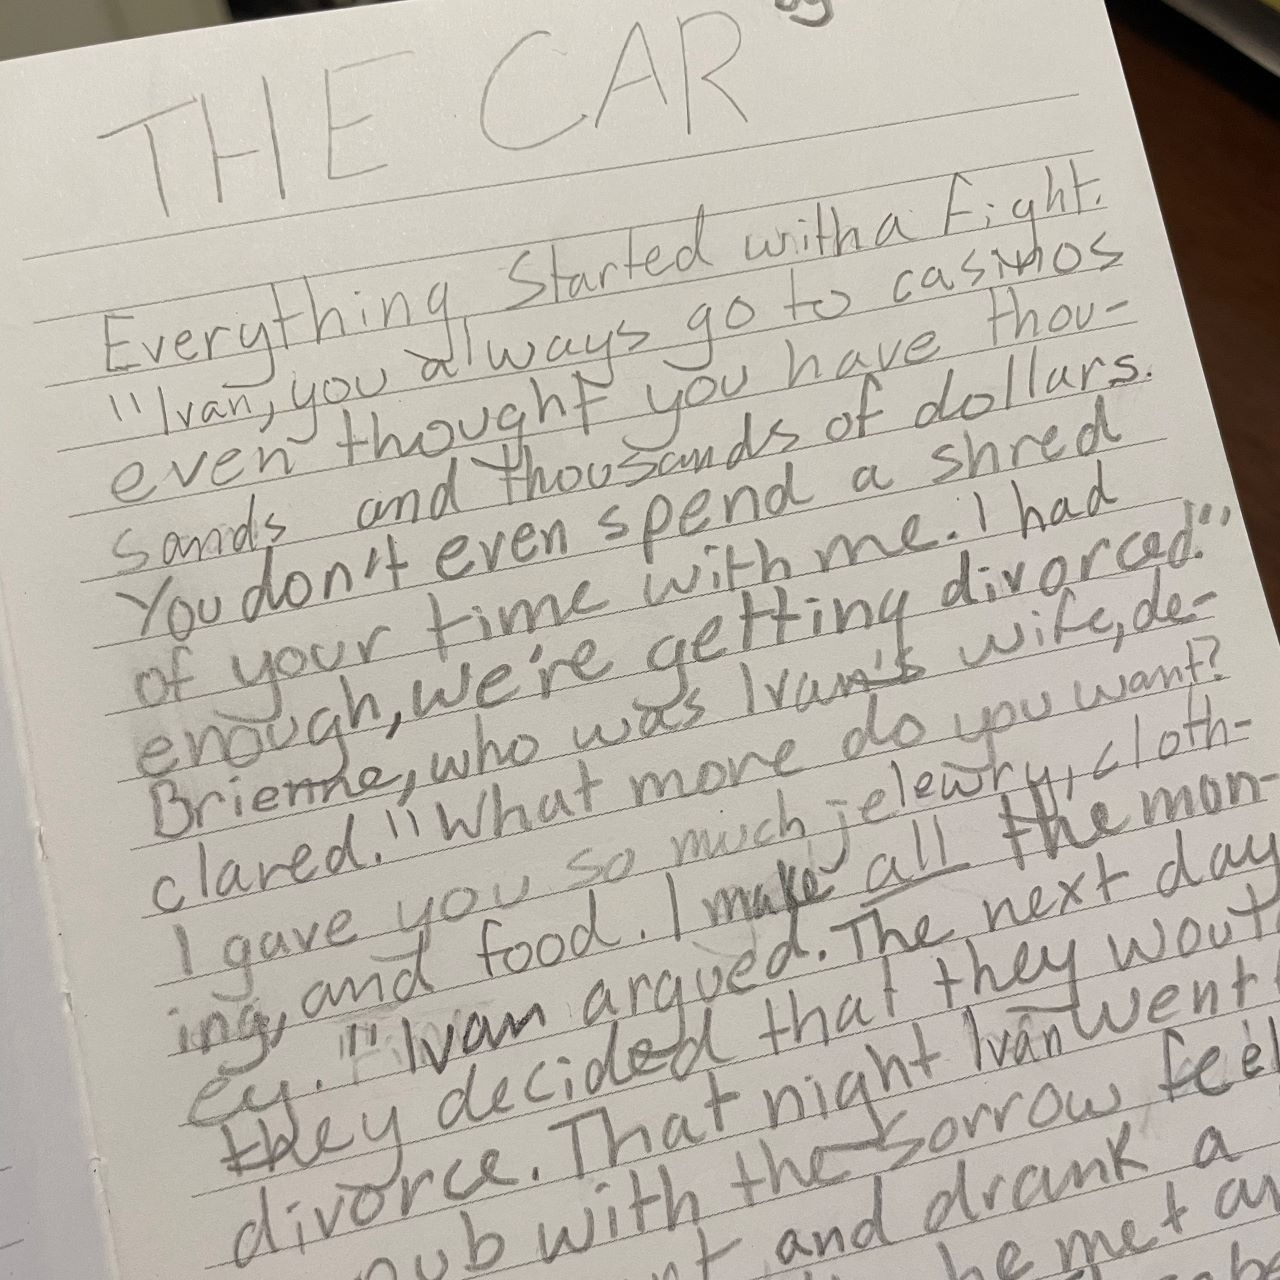 THE CAR
Everything Started with a Fight.
"Ivan, you always go to casinos
even thought you have thou-
sands and thousands of dollars.
You don't even spend a shred
of your time with me. I had
enough, we're getting divorced."
Brienne, who was Ivan's wife, de-
clared. "What more do you want?
I gave you so much jelewry, cloth-
ing, and food. I make all the mon-
ey." Ivan argued. The next day
they decided that they
divorce. That night Ivan went
pub with the sorrow feel
and drank a
he met